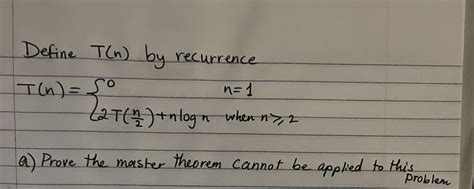 Define T(n) by recurrence
T(n) = { 0 n=1
2T(n/2) + n log n when n ≥ 2
a) Prove the master theorem cannot be applied to this
problem